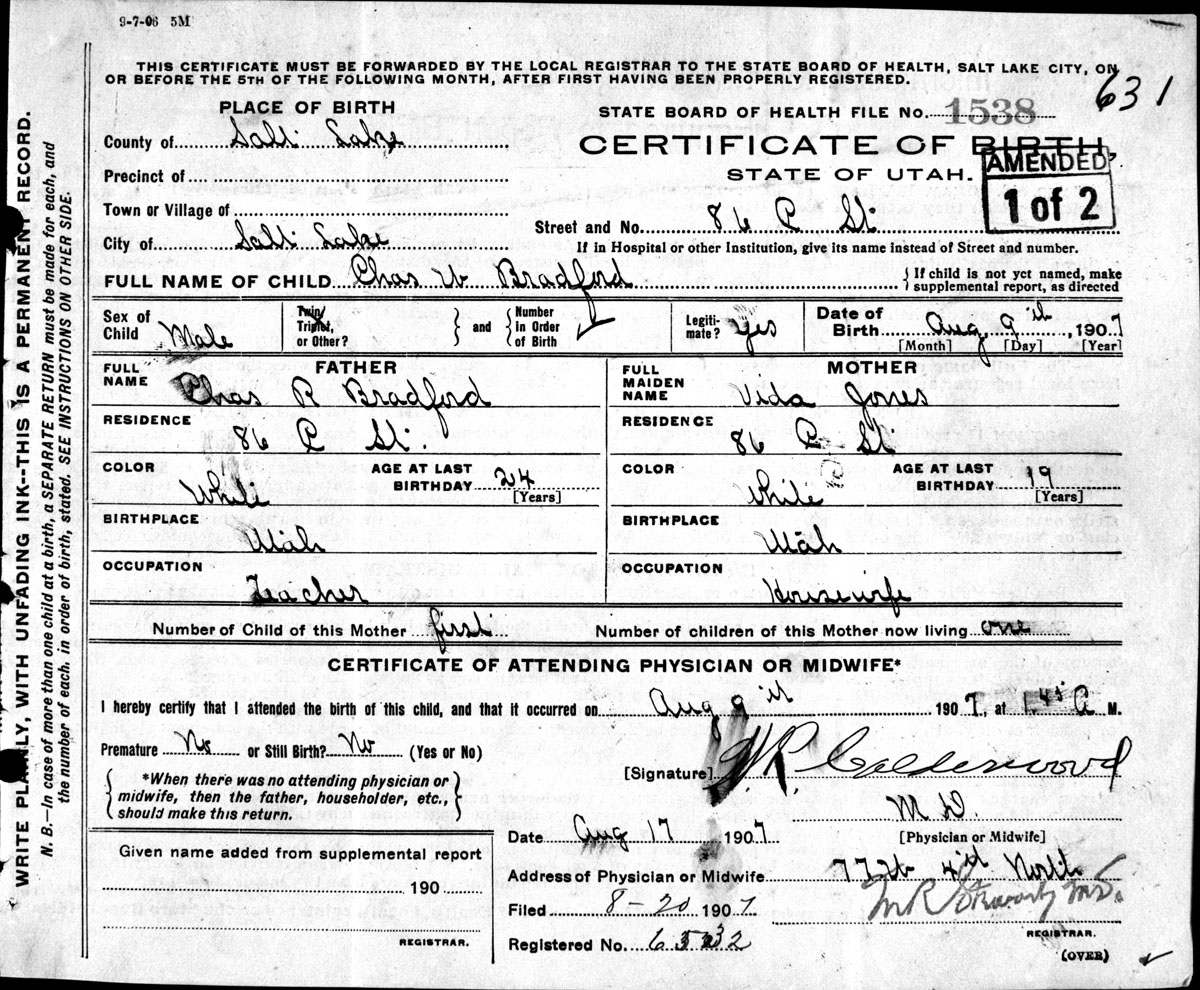 9-7-06 5M
THIS CERTIFICATE MUST BE FORWARDED BY THE LOCAL REGISTRAR TO THE STATE BOARD OF HEALTH, SALT LAKE CITY, ON
OR BEFORE THE 5TH OF THE FOLLOWING MONTH, AFTER FIRST HAVING BEEN PROPERLY REGISTERED.
631
PLACE OF BIRTH
STATE BOARD OF HEALTH FILE No. 1538
County of Salt Lake
CERTIFICATE OF BIRTH,
Precinct of
STATE OF UTAH.
AMENDED
1 of 2
Town or Village of
Street and No. 86 C St.
City of Salt Lake
If in Hospital or other Institution, give its name instead of Street and number.
FULL NAME OF CHILD Chas W Bradford
If child is not yet named, make
supplemental report, as directed
Sex of Child Male
Twin, Triplet, or Other?
and
Number in Order of Birth
Legiti-mate? Yes
Date of Birth Aug 9th 1907
[Month] [Day] [Year]
FATHER
FULL NAME Chas R Bradford
RESIDENCE 86 C St.
COLOR White
AGE AT LAST BIRTHDAY 24
[Years]
BIRTHPLACE Utah
OCCUPATION Teacher
MOTHER
FULL MAIDEN NAME Vida Jones
RESIDENCE 86 C St
COLOR White
AGE AT LAST BIRTHDAY 19
[Years]
BIRTHPLACE Utah
OCCUPATION Housewife
Number of Child of this Mother first
Number of children of this Mother now living one
CERTIFICATE OF ATTENDING PHYSICIAN OR MIDWIFE*
I hereby certify that I attended the birth of this child, and that it occurred on Aug 9th 1907, at 1 45 A M.
Premature No or Still Birth? No (Yes or No)
[Signature] Calderwood
*When there was no attending physician or
midwife, then the father, householder, etc.,
should make this return.
M D.
[Physician or Midwife]
Date Aug 17 1907
Given name added from supplemental report
190
REGISTRAR.
Address of Physician or Midwife 772 4th North
Filed 8-20 1907
Registered No.
REGISTRAR.
(OVER)
WRITE PLAINLY, WITH UNFADING INK--THIS IS A PERMANENT RECORD.
N. B.—In case of more than one child at a birth, a SEPARATE RETURN must be made for each, and
the number of each, in order of birth, stated. SEE INSTRUCTIONS ON OTHER SIDE.